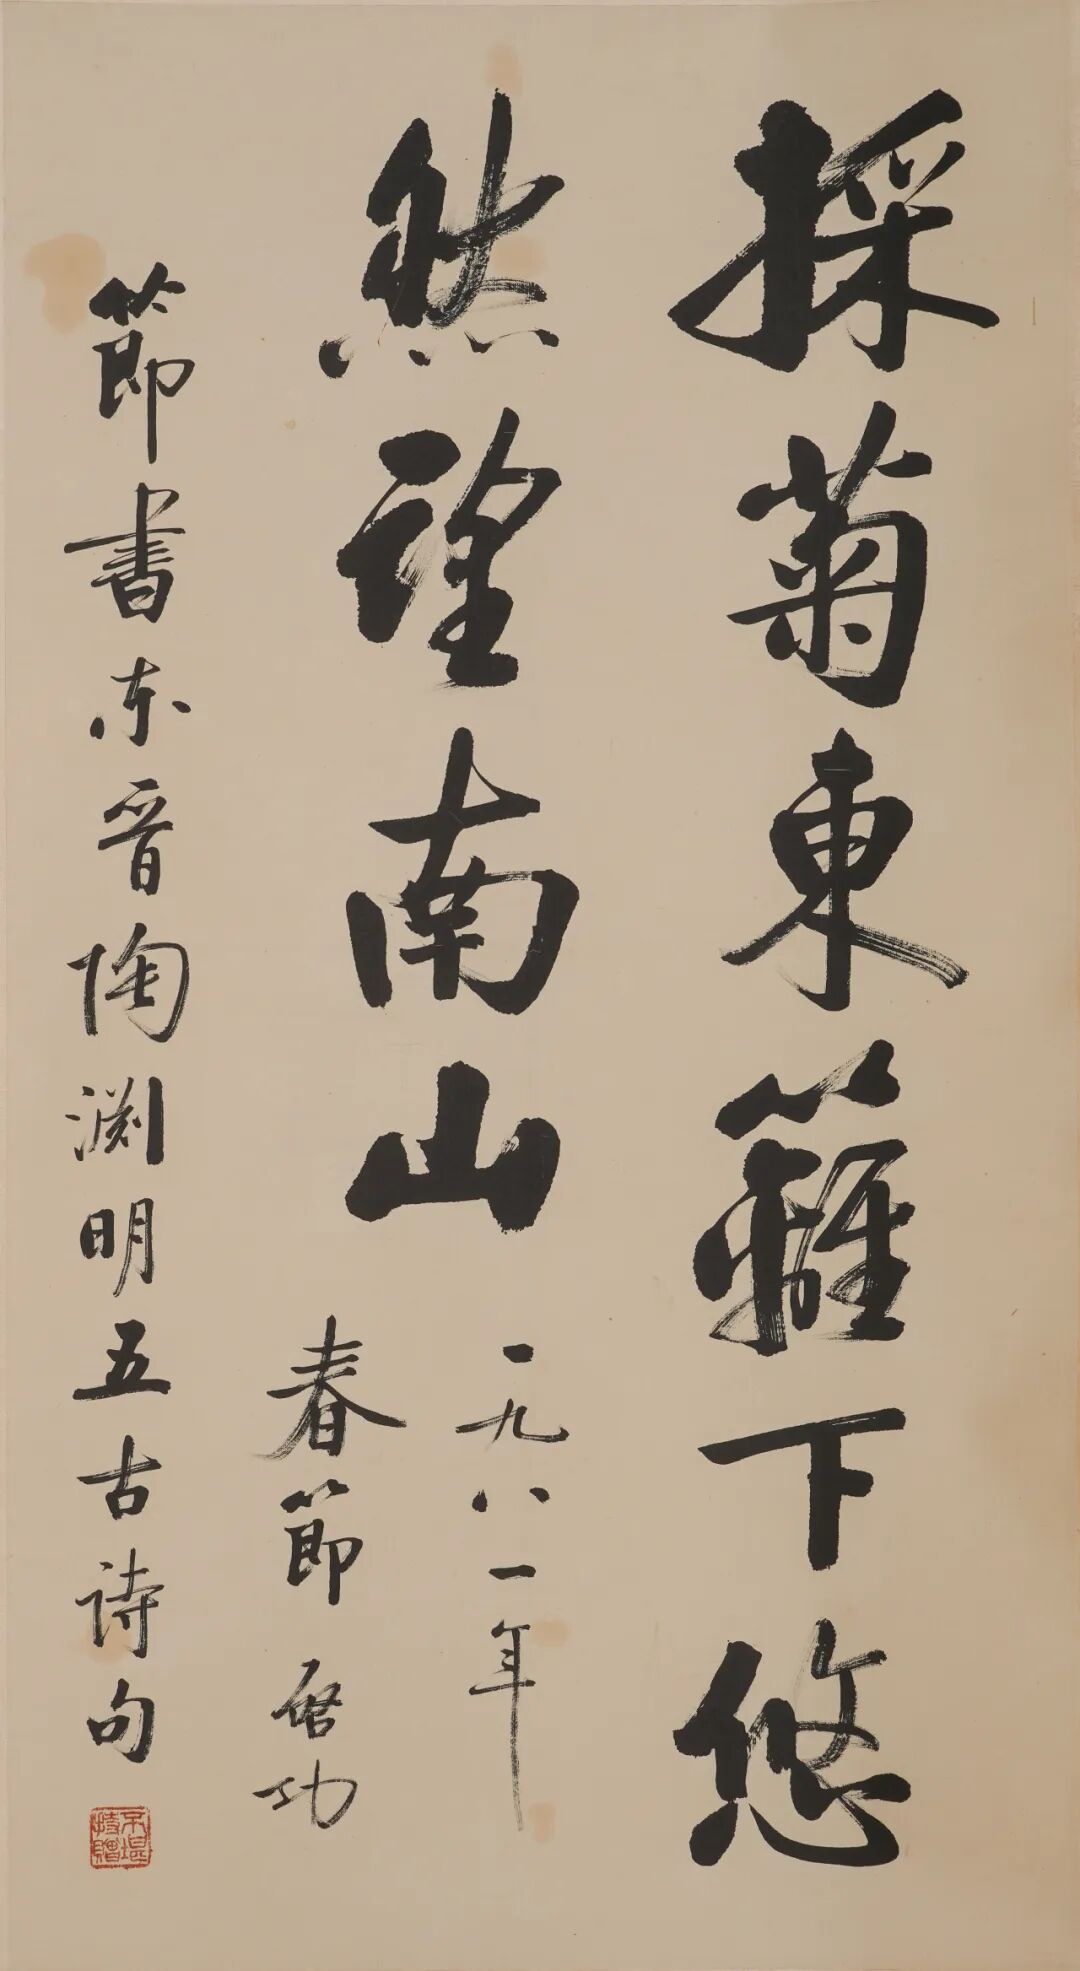 採菊東籬下悠
然望南山
一九八一年
春節 啓功
節書东晉陶渊明五古詩句
不堪
持贈